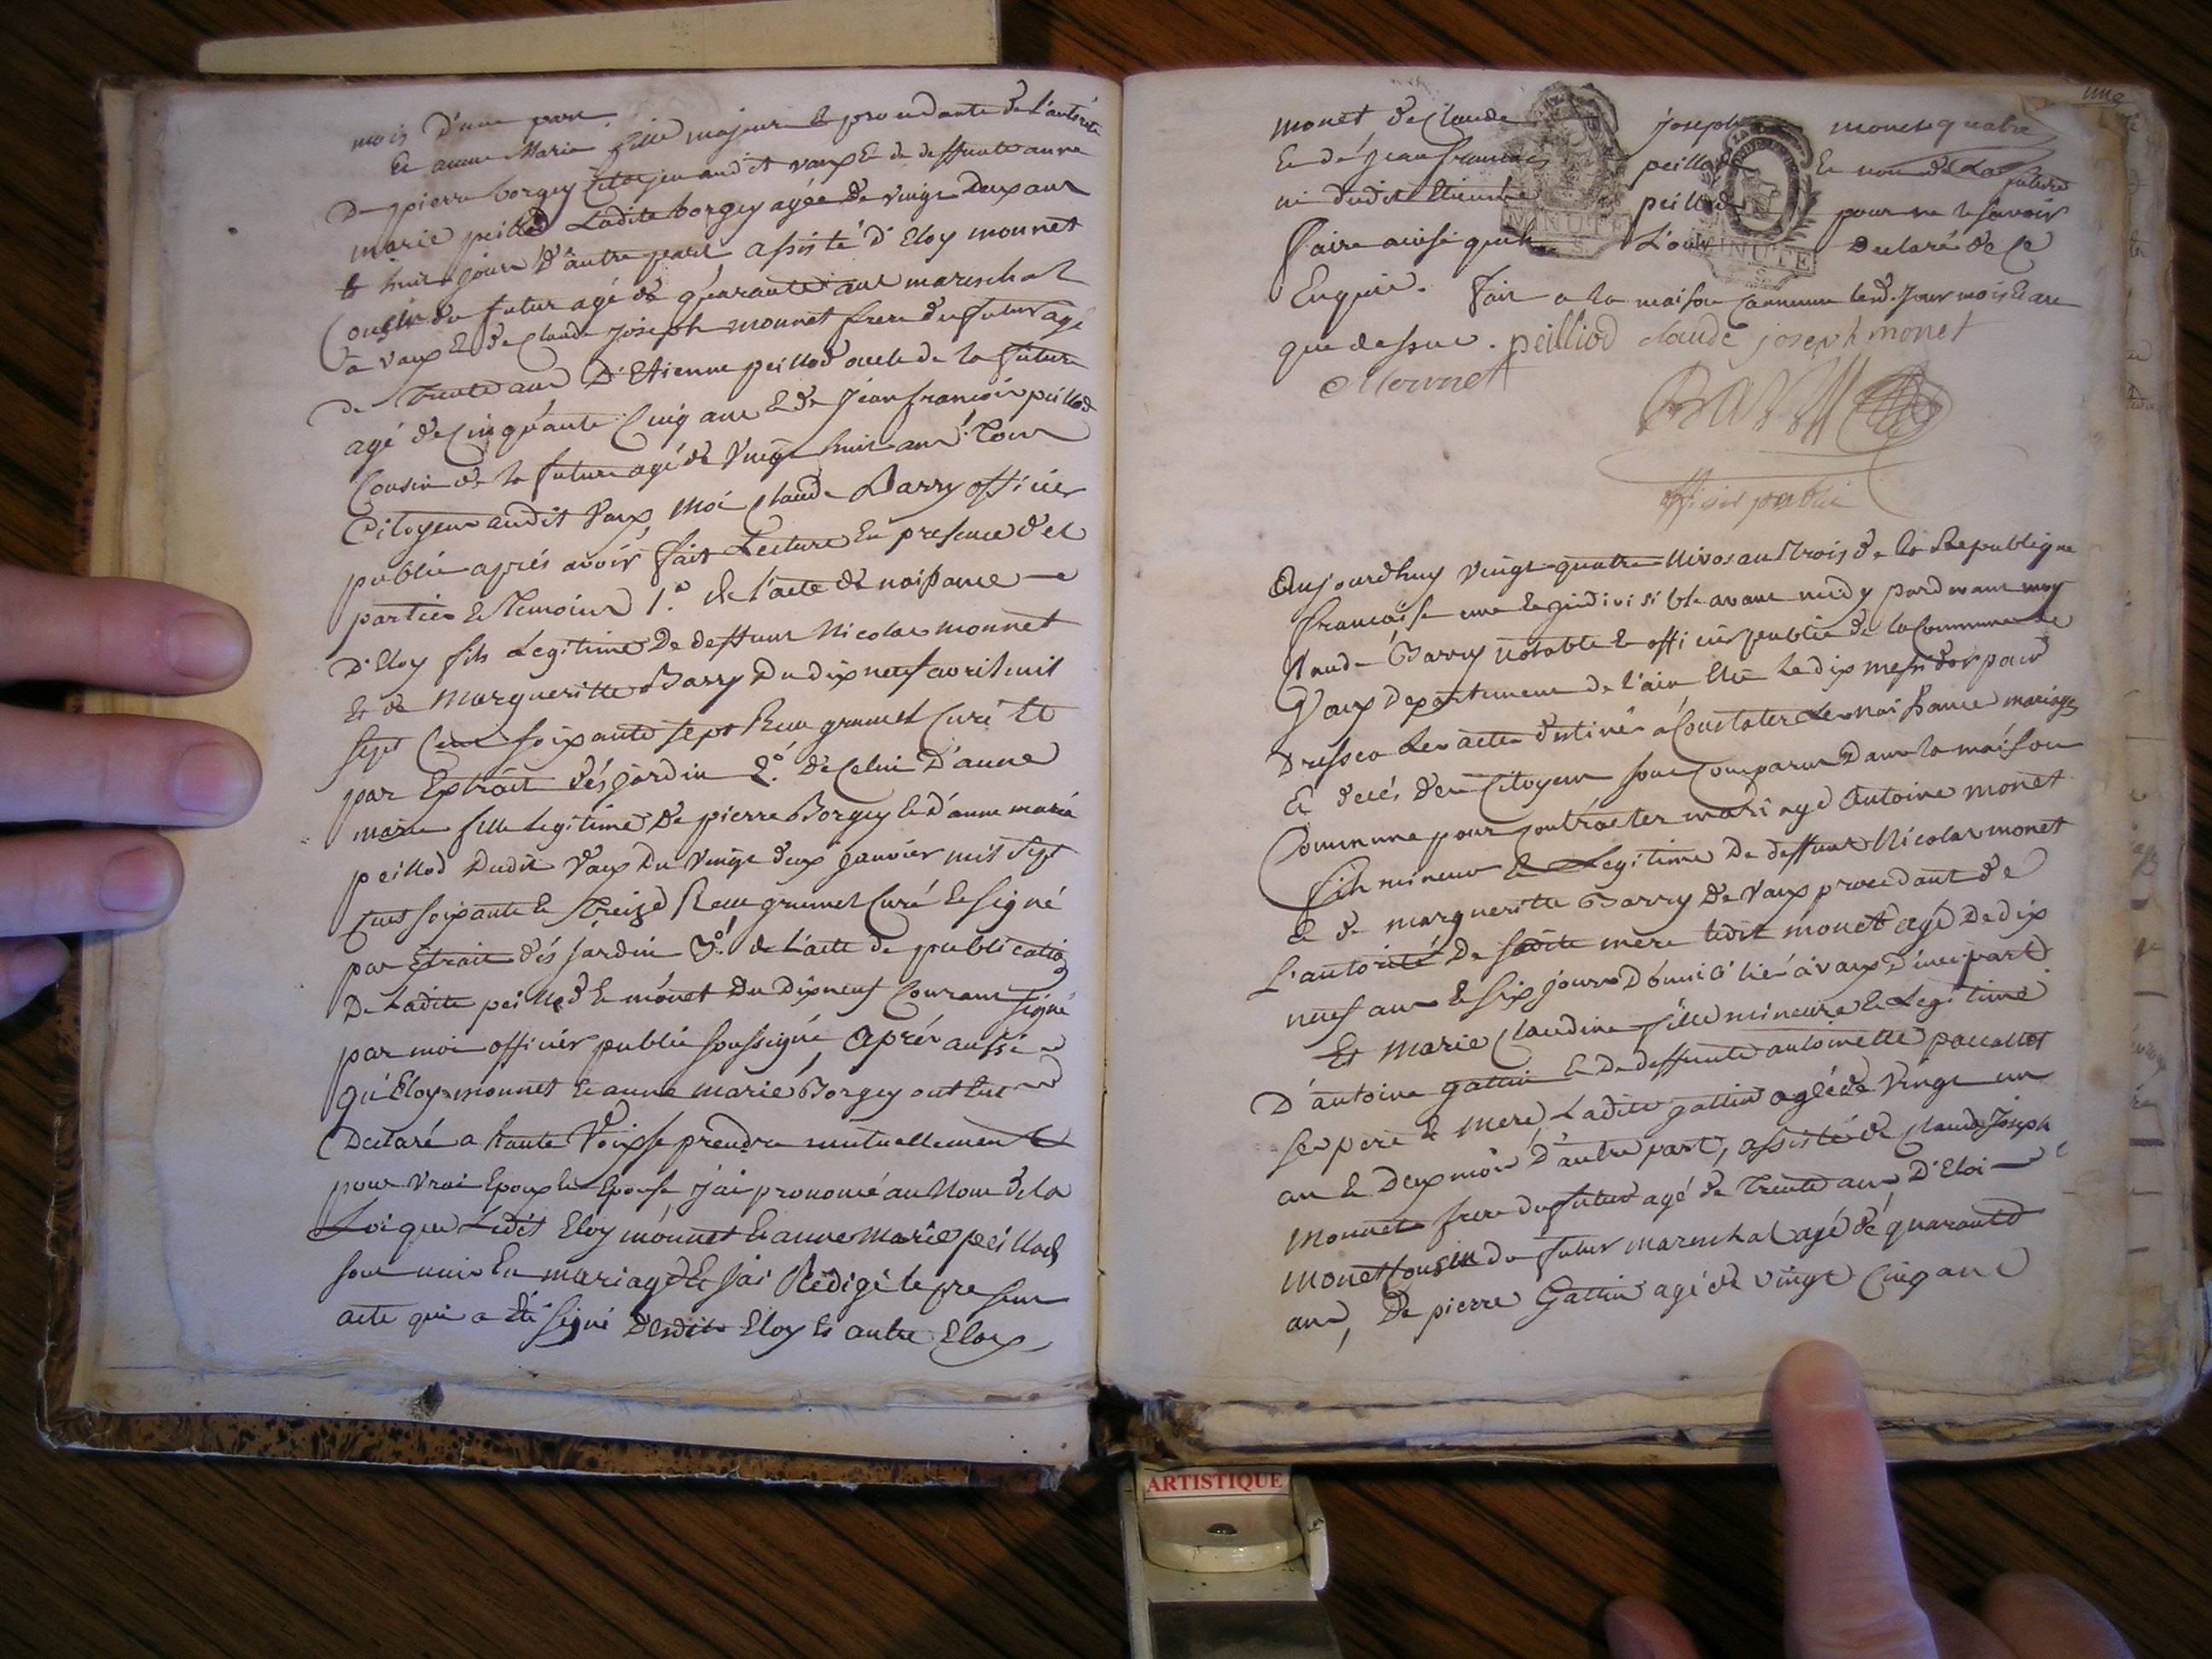 mois D'une part.
Et anne Marie fille majeure et procedante de l'autorité
De pierre borgey Citoyen audit vaux et de deffunte anne
marie peillod Ladite borgey agée de vingt Deux ans
huit jours D'autre part assisté d'Eloy monnet
Cousin du futur agé de quarante ans mareschal
a vaux et de Claude Joseph monnet frere du futur agé
de trente ans D'Etienne peillod oncle de la future
agé de Cinquante Cinq ans et de Jean françois peillod
Cousin de la future agé de Vingt huit ans. Tous
Citoyens audit Vaux, Moi Claude Barry officier
public aprés avoir fait Lecture En presence des
parties et Temoins 1.º de l'acte de naissance
D'Eloy fils Legitime De deffunt Nicolas monnet
et de Margueritte Barry Du dix neuf avril mil
sept Cent soixante sept Reçu grumet Curé et
par Extrait désjardin 2.º de Celui D'anne
marie fille legitime De pierre Borgey et d'anne marie
peillod Dudit Vaux Du Vingt deux janvier mil sept
Cent soixante et Treize Reçu grumet Curé et signé
par Extrait dés jardin 3.º de L'acte de publication
De Ladite peillod et mónet Du Dix neuf Courant signé
par moi officiér public soussigné Aprés aussi
qu'Eloy monnet et anne marie Borgey ont Eut
Declaré a haute Voix se prendre mutuellement
pour vrai Epoux et Epouse, j'ai prononcé au Nom de la
Loi que Ledit Eloy mónnet et anne Marie peillod
sont unis En mariage et j'ai Redigé le present
acte qui a été signé Eloy et autre Eloy
une
monet, de Claude Joseph monet quatre
et de Jean francois peillod et non de La future
ni dudit Etienne peillod pour ne le savoir
faire ainsi qu'ils L'ont Declaré de Ce
Enquis. Fait a la maison Commune led. Jour mois et an
que dessus. peilliod claude joseph monet
Monnet
BARRY
officier public
Aujourdhuy vingt quatre Nivos an Trois de la Republique
francaise une et indivisible avant midy pardevant moy
Claude Barry notable et officier public de la Commune de
Vaux Departement de l'ain Elu le dix messidor pour
Dresser Les actes destinés a Constater Les naissance mariages
et decés des Citoyens sont Comparus Dans la maison
Commune pour Contracter mariage Antoine monet
fils mineur et Legitime De deffunt Nicolas monet
et de margueritte Barry de Vaux procedant de
L'autorité De sadite mere ledit monet agé De dix
neuf ans et six jours Domicilié a vaux D'une part
Et Marie Claudine fille mineure et Legitime
D'antoine gattin et De deffunte antoinette paccallet
ses pere et mere, Ladite gattin agée de Vingt un
an et Deux mois D'autre part, assistés de Claude Joseph
Monnet frere du futur agé de Trente ans, D'Eloi
monet Cousin du futur mareschal agé de quarante
ans, De pierre Gattin agé de vingt Cinq ans
ARTISTIQUE